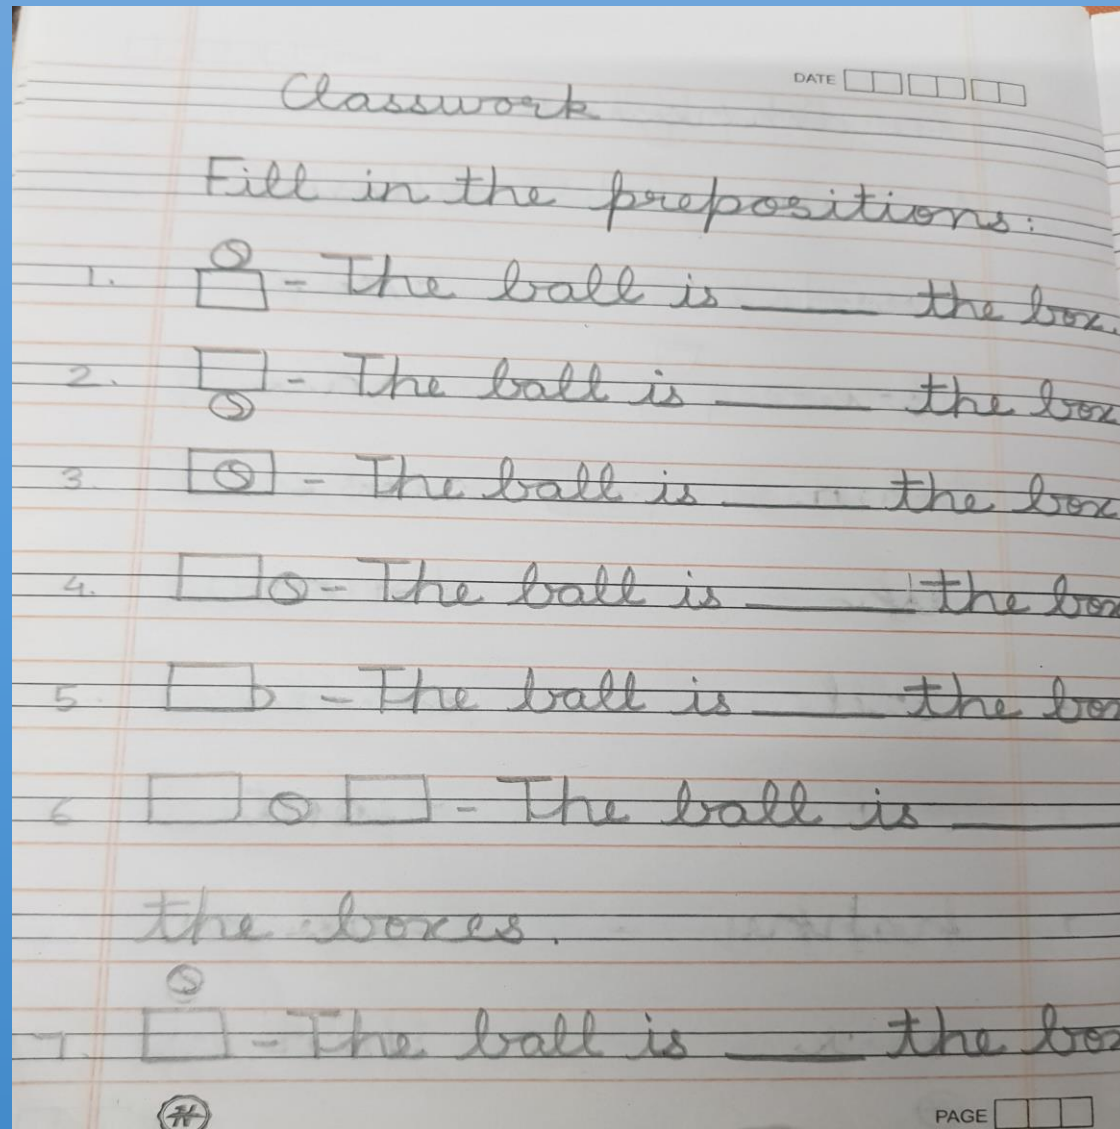 DATE
Classwork
Fill in the prepositions:
1. - The ball is ____ the box.
2. - The ball is ____ the box
3. - The ball is ____ the box
4. - The ball is ____ the box
5. - The ball is ____ the box
6 - The ball is ____
the boxes.
7. - The ball is ____ the box
PAGE